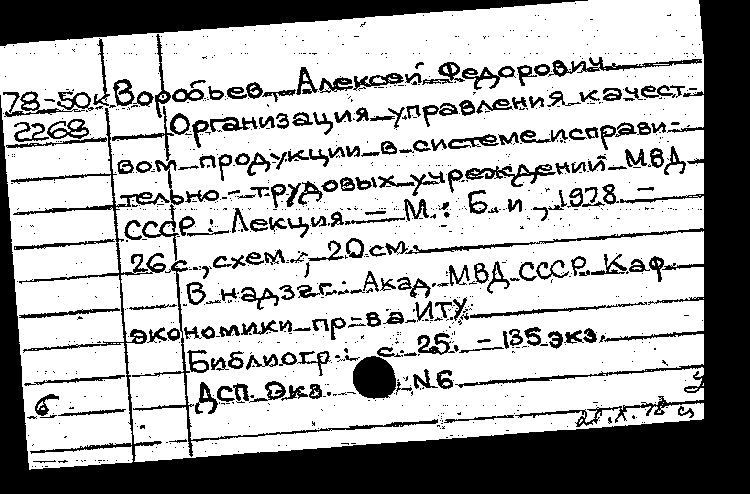 78-50к Воробьев, Алексей Федорович.
2268 Организация управления качест-
вом продукции в системе исправи-
тельно-трудовых учреждений МВД
СССР: Лекция. — М.: Б. и., 1978. —
26 с., схем.; 20 см.
В надзаг.: Акад. МВД СССР. Каф.
экономики пр-ва ИТУ.
Библиогр.: с. 25. — 135 экз.
ДСП. Экз. N6
б